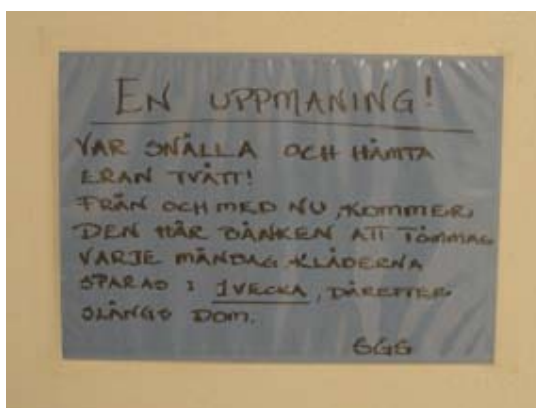 EN UPPMANING!
VAR SNÄLLA OCH HÄMTA
ERAN TVÄTT!
FRÅN OCH MED NU, KOMMER
DEN HÄR BÄNKEN ATT TÖMMAS
VARJE MÅNDAG. KLÄDERNA
SPARAS I 1 VECKA, DÄREFTER
SLÄNGS DOM.
SGS